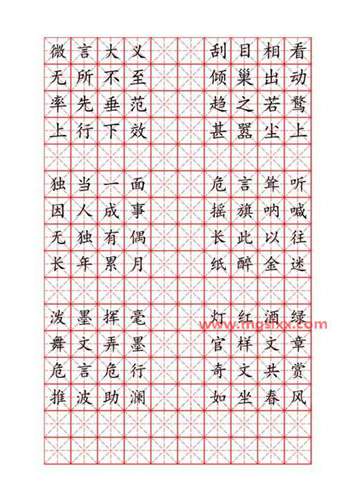 微言大义 刮目相看
无所不至 倾巢出动
率先垂范 趋之若鹜
上行下效 甚嚣尘上
独当一面 危言耸听
因人成事 摇旗呐喊
无独有偶 长此以往
长年累月 纸醉金迷
泼墨挥毫 灯红酒绿
www.mgsixx.com
舞文弄墨 官样文章
危言危行 奇文共赏
推波助澜 如坐春风